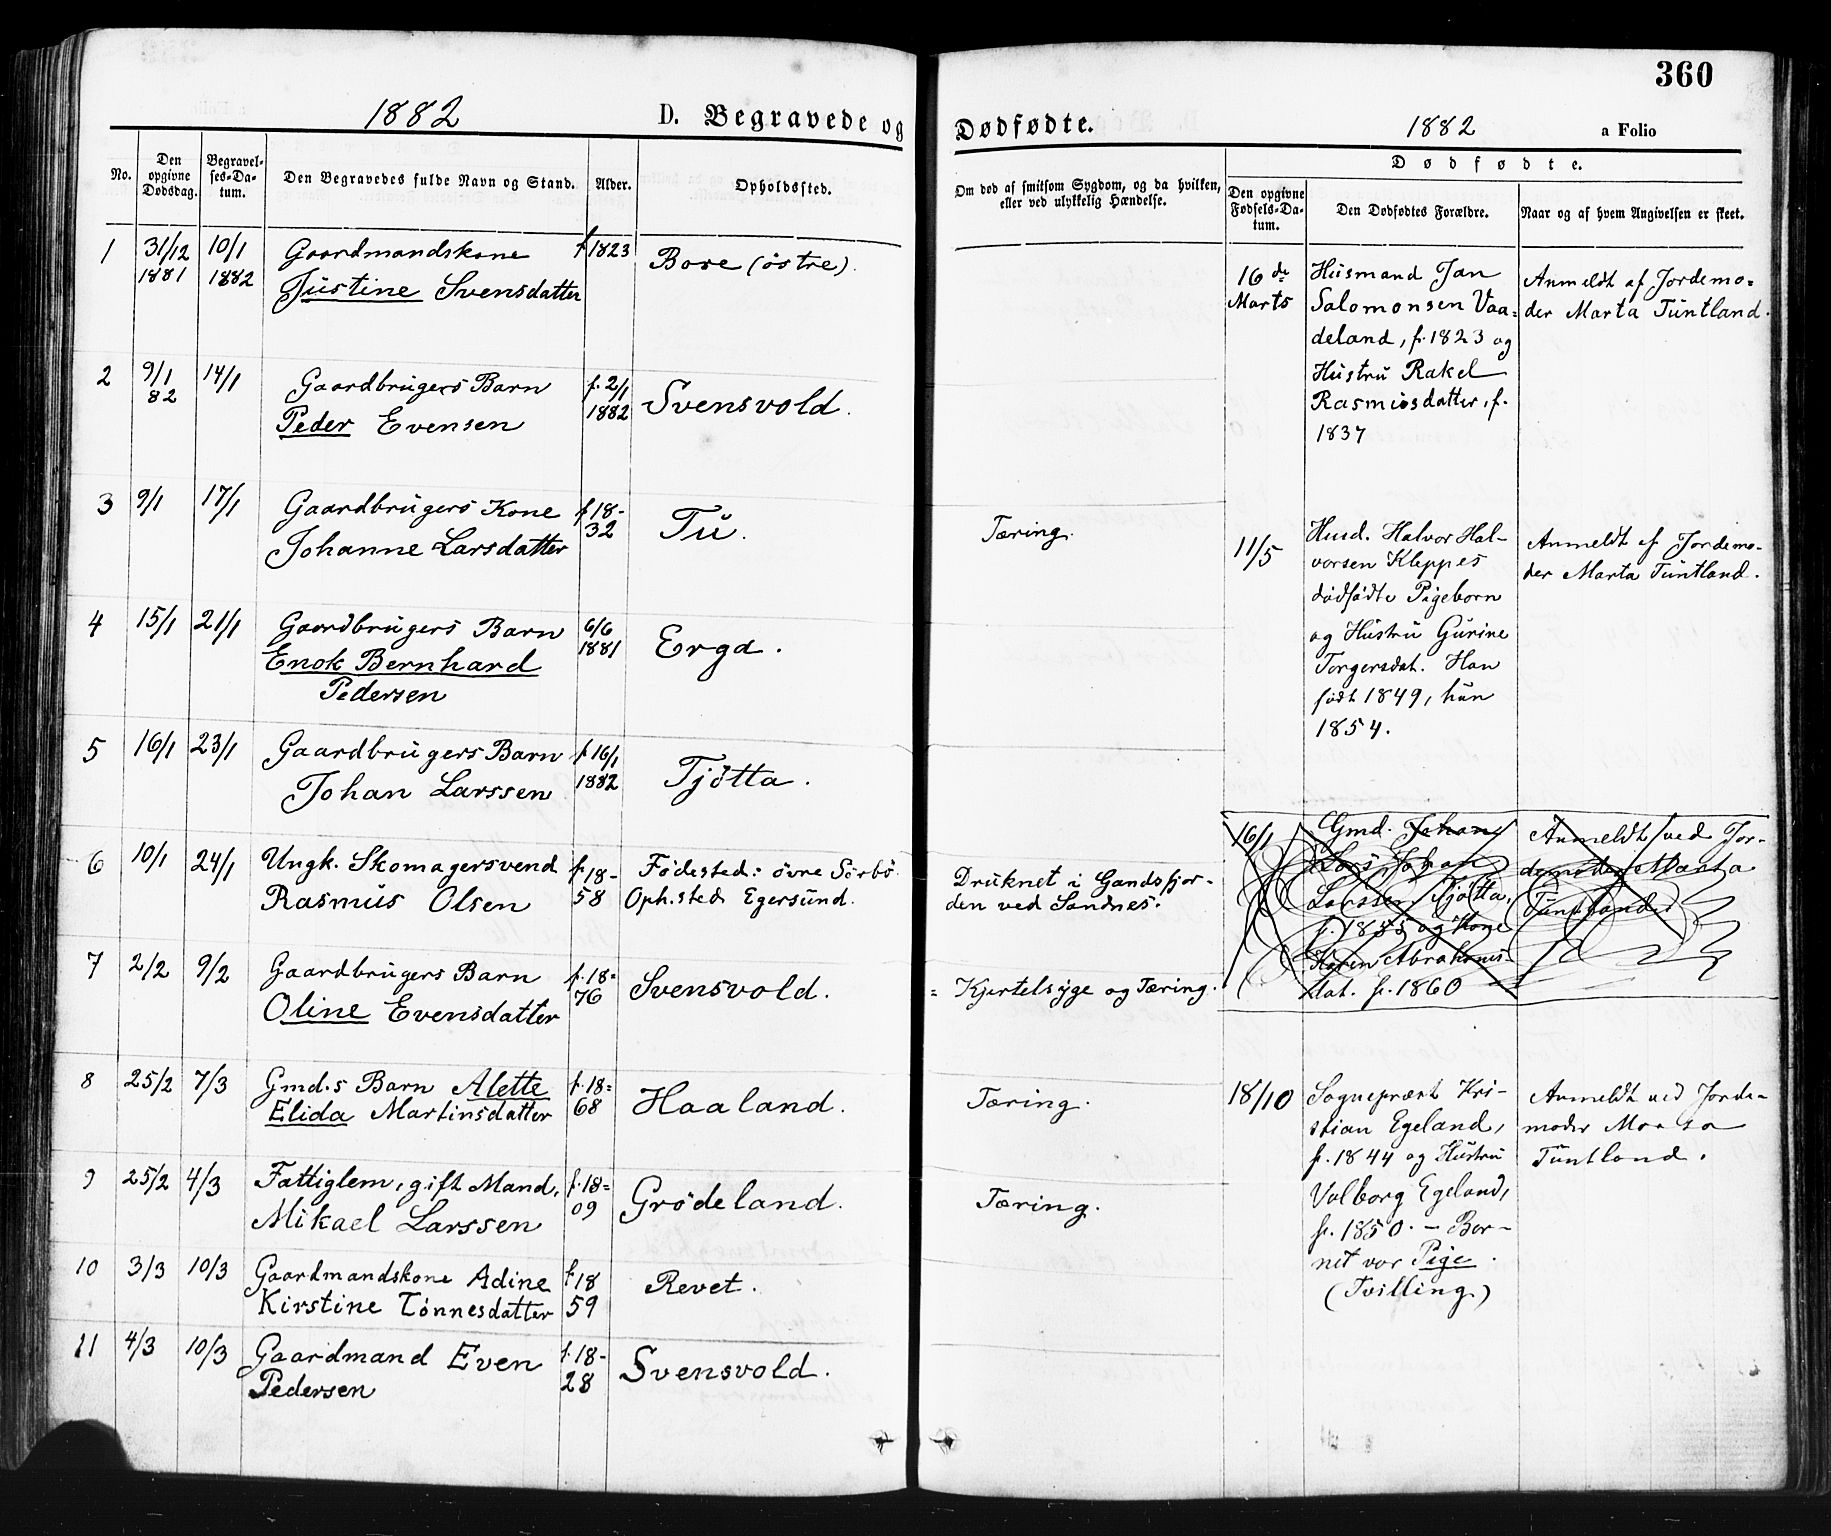 360
1882
D. Begravede og Dødfødte.
1882
a Folio
No.
Den opgivne Dødsdag.
Begravelses-Datum.
Den Begravedes fulde Navn og Stand.
Alder.
Opholdssted.
Om død af smitsom Sygdom, og da hvilken,
eller ved ulykkelig Hændelse.
Dødfødte.
Den opgivne Fødsels-Datum.
Den Dødfødtes Forældre.
Naar og af hvem Angivelsen er skeet.
1 31/12 10/1 Gaardmandskone f 1823 Bore (østre).
1881 1882 Justine Svensdatter
2 9/1 14/1 Gaardbrugers Barn f. 2/1 Svensvold.
82 Peder Evensen 1882
3 9/1 17/1 Gaardbrugers Kone f 18- Tu. Tæring.
Johanne Larsdatter 32
4 15/1 21/1 Gaardbrugers Barn 6/6 Erga.
Enok Bernhard 1881
Pedersen
5 16/1 23/1 Gaardbrugers Barn f 16/1 Tjøtta.
Johan Larssen 1882
6 10/1 24/1 Ungk. Skomagersvend f. 18- Fødested: øvre Sørbø. Druknet i Gandsfjor-
Rasmus Olsen 58 Oph.sted Egersund. den ved Sandnes.
7 2/2 9/2 Gaardbrugers Barn f. 18= Svensvold. = Kjertelsyge og Tæring.
Oline Evensdatter 76
8 25/2 7/3 Gmd.s Barn Alette f. 18= Haaland. Tæring.
Elida Martinsdatter 68
9 25/2 4/3 Fattiglem, gift Mand, f. 18= Grødeland. Tæring.
Mikael Larssen 09
10 3/3 10/3 Gaardmandskone Adine f. 18 Revet.
Kirstine Tønnesdatter 59
11 4/3 10/3 Gaardmand Even f. 18- Svensvold.
Pedersen 28
16de Husmand Jan Anmeldt af Jordemo=
Marts Salomonsen Vaa= der Marta Tuntland.
deland, f. 1823 og
Hustru Rakel
Rasmusdatter, f.
1837
11/5 Husd. Halvor Hal- Anmeldt af Jordemo-
vorsen Kleppes der Marta Tuntland.
dødfødte Pigebarn
og Hustru Gurine
Torgersdat. Han
født 1849, hun
1854.
16/1 Gmd. Johan Anmeldt ved Jor-
Lars Johan demoder Marta
Larssen Tjøtta, Tuntland.
f. 1855 og Kone
Karen Abrahams-
dat. f. 1860
18/10 Sognepræst Kri- Anmeldt ved Jorde-
stian Egeland, moder Marta
f. 1844 og Hustru Tuntland.
Valborg Egeland,
f. 1850. - Bar-
net var Pige.
(Tvilling.)